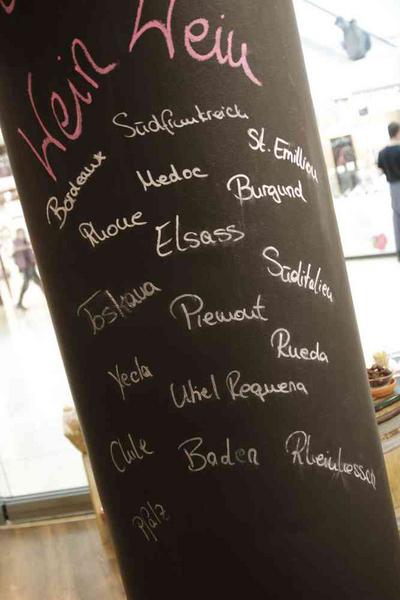 Wein Wein
Südfrankreich
St. Emillion
Bordeaux
Medoc
Burgund
Rhone
Elsass
Süditalien
Toskana
Piemont
Rueda
Yecla
Utiel Requena
Chile
Baden
Rheinhessen
Pfalz